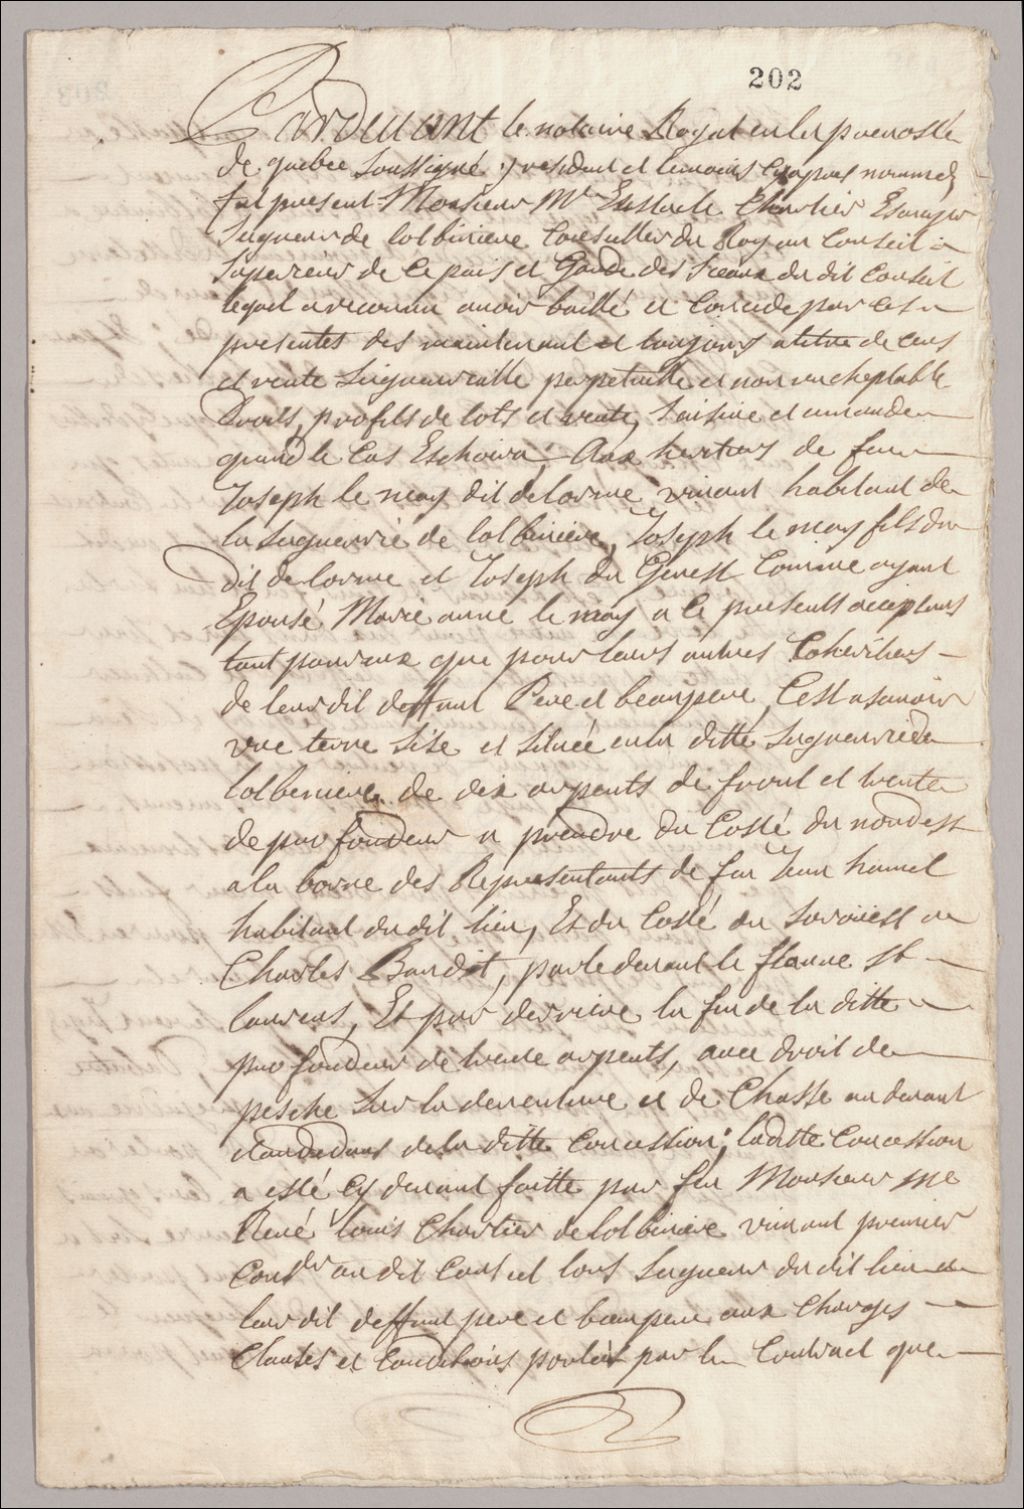 202
Pardevant le notaire Royal en la prevosté
de quebec soussigné y resident et temoins cy apres nommés
fut present Monsieur Mr Eustache Chartier Escuyer
Seigneur de lotbiniere Conseiller du Roy au Conseil
Superieur de ce pais et Garde des Sceaux du dit Conseil
lequel a reconnu avoir baillé et Concede par ces
presentes des maintenant et toujours a titre de cens
et rente Seigneurialle perpetuelle et non racheptable
Droits, profits de lots et vente, Saisine et amande
quand le Cas Eschoira; Aux heritiers de feu
Joseph le may dit delorme vivant habitant de
la Seigneurie de lotbiniere, Joseph le may fils du
dit delorme et Joseph du Genest Comme ayant
Epousé Marie anne le may a ce presents acceptans
tant pour eux que pour leurs autres Coheritiers
de leur dit deffunt Pere et beaupere, C'est a savoir
une terre Sise et Situee en la ditte Seigneurie de
lotbiniere de dix arpents de front et trente
de profondeur a prendre du Costé du nordest
a la borne des Representants de feu Jean hamel
habitant du dit lieu, Et du Costé du Sorouest a
Charles Baudet, par le devant le fleuve St
laurens, Et par derriere la fin de la ditte
profondeur de trente arpents, avec droit de
pesche sur la devanture et de Chasse au devant
et au dedans de la ditte Concession; laditte Concession
a esté Cy devant faitte par feu Monsieur Me
René louis Chartier de lotbiniere vivant premier
Conser au dit Conseil lors Seigneur du dit lieu a
leur dit deffunt pere et beaupere aux Charges
Clauses et Conditions portés par le Contract que